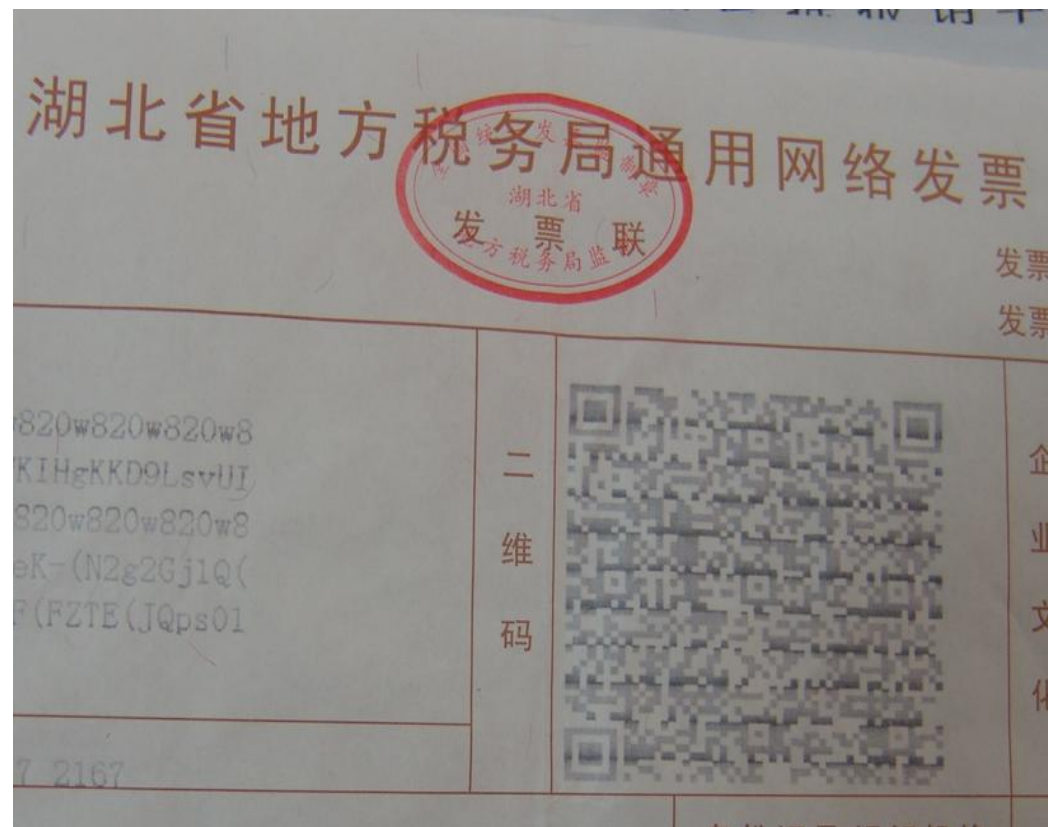 湖北省地方税务局通用网络发票
湖北省
发票联
方税务局监
发票
发票
820w820w820w8
KIHgKKD9LsvUI
820w820w820w8
eK-(N2g2Gj1Q(
F(FZTE(JQps01
二维码
企业文化
7 2167